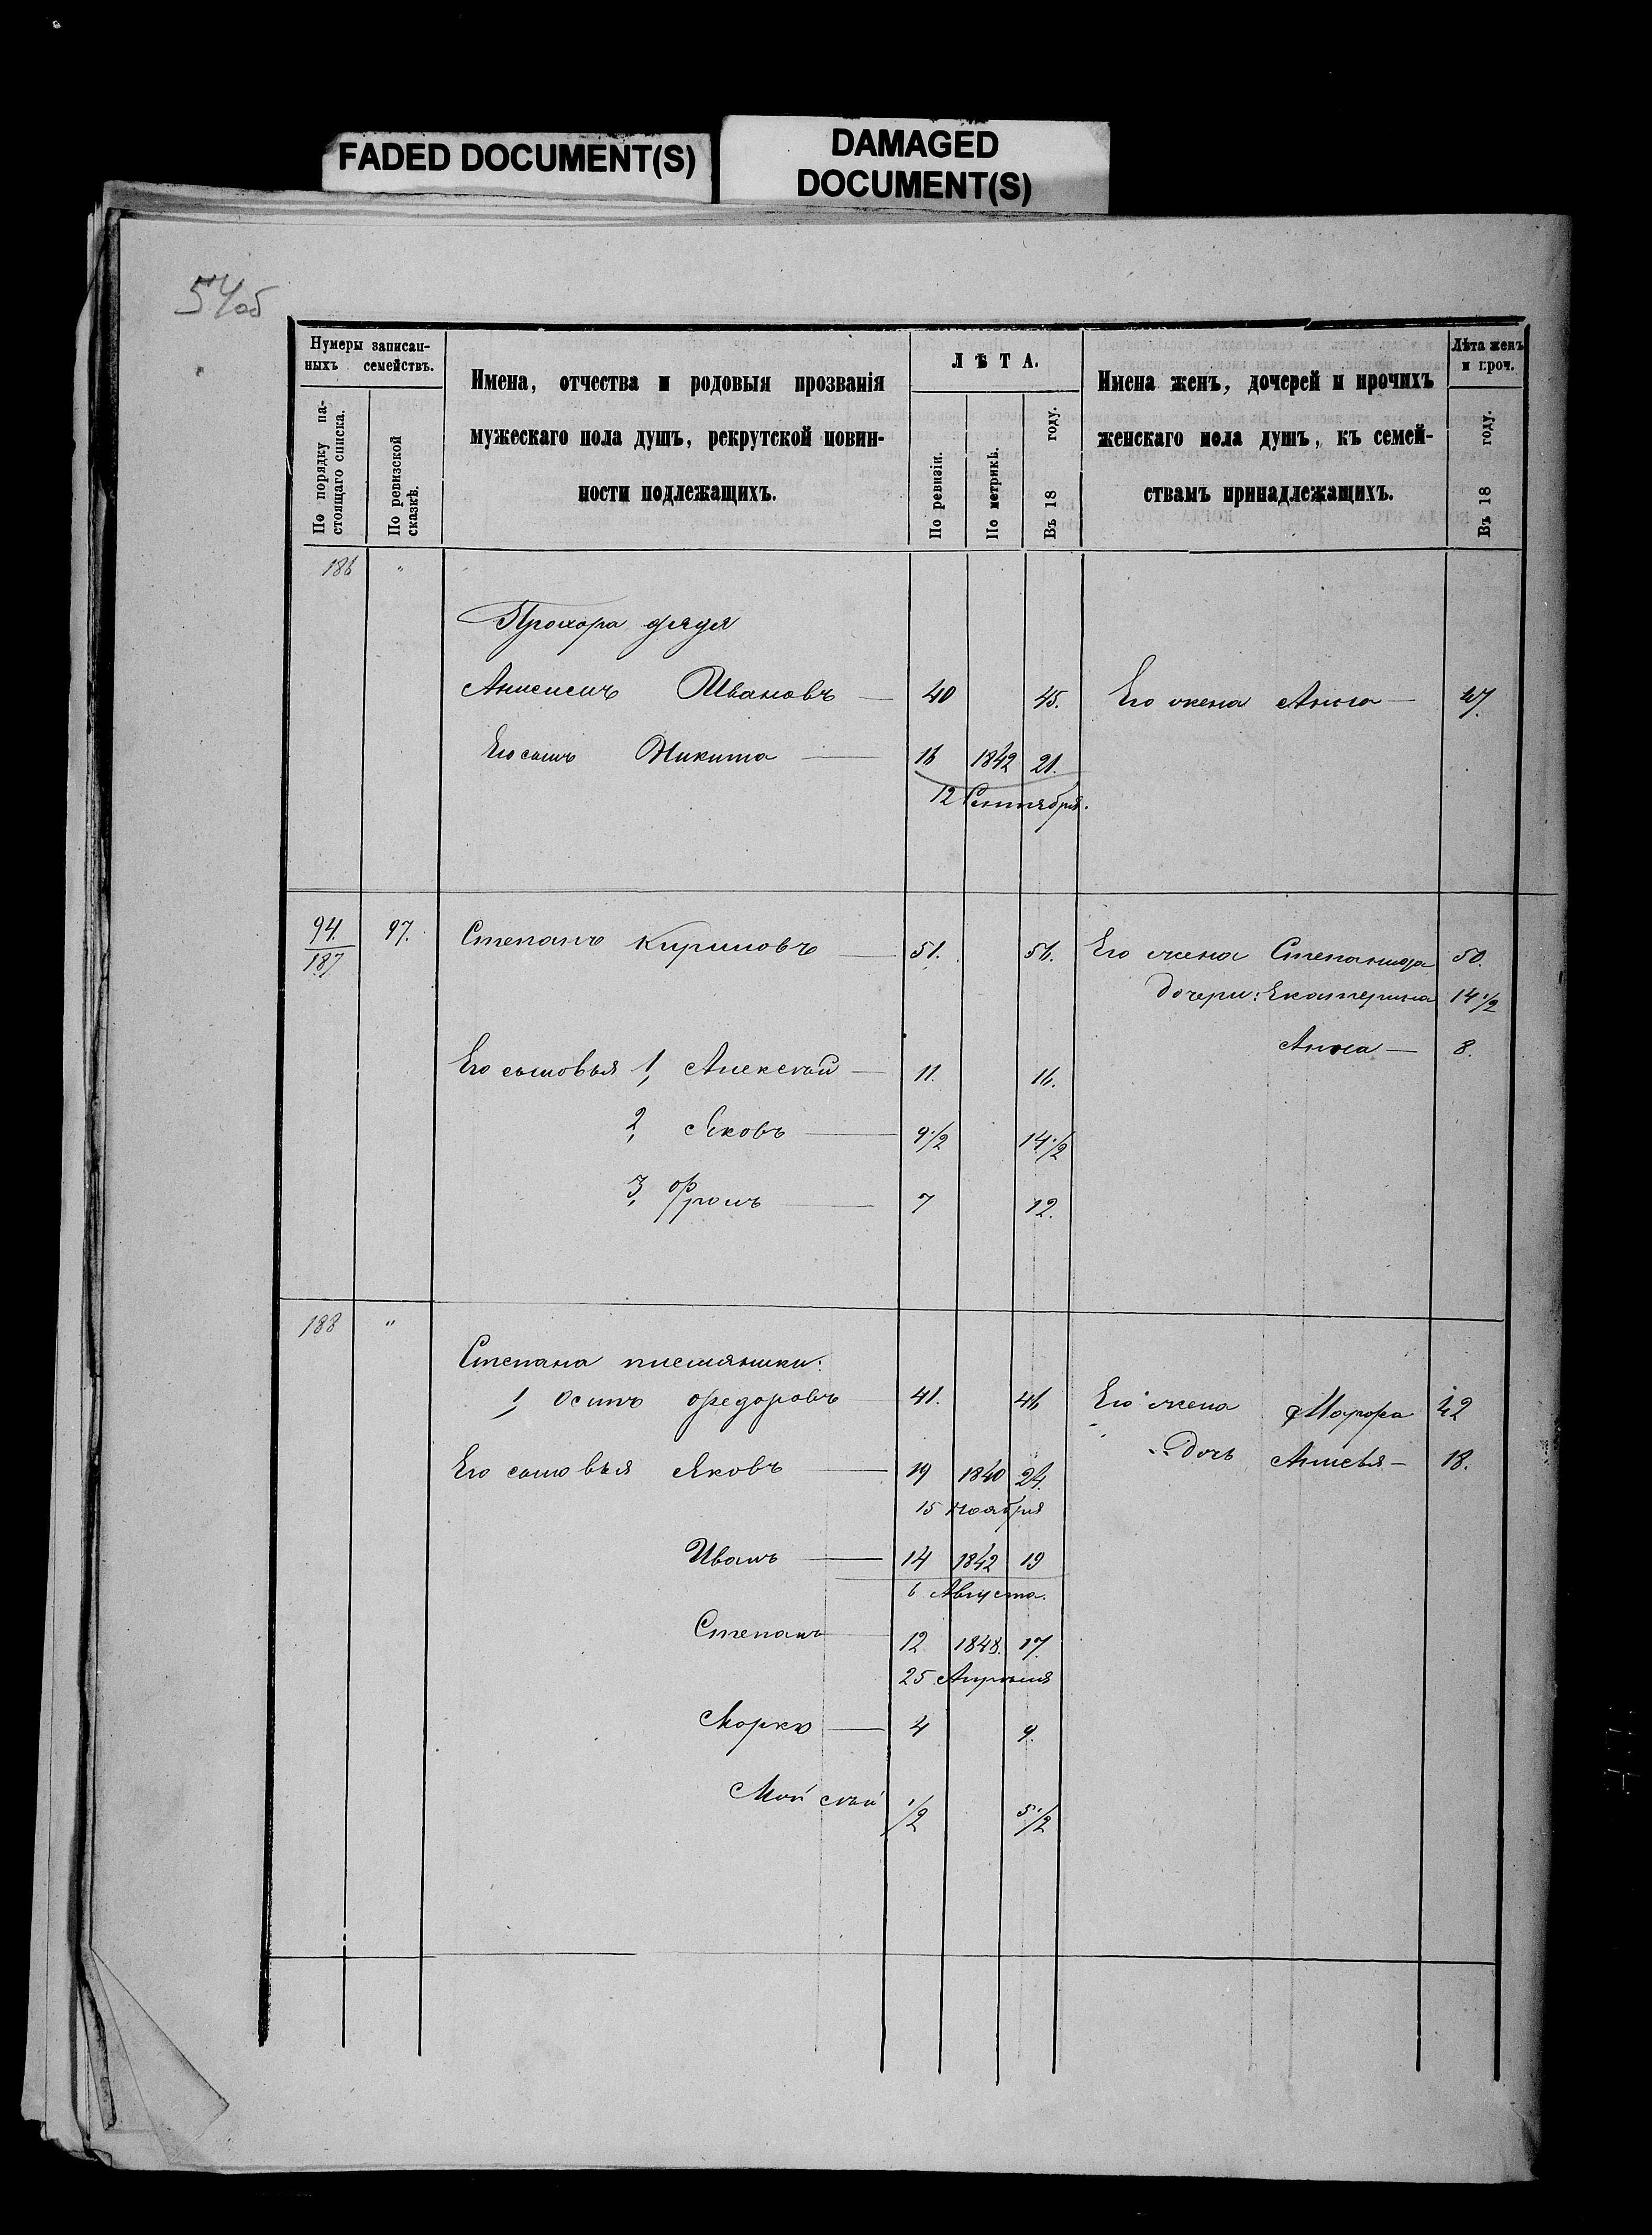 FADED DOCUMENT(S)
DAMAGED
DOCUMENT(S)
54об
Нумеры записан-
ныхъ семействъ.
По порядку на-
стоящаго списка.
По ревизской
сказкѣ.
Имена, отчества и родовыя прозванія
мужескаго пола душъ, рекрутской повин-
ности подлежащихъ.
ЛѢТА.
По ревизіи.
По метрикѣ.
Въ 18 году.
Имена женъ, дочерей и прочихъ
женскаго пола душъ, къ семей-
ствамъ принадлежащихъ.
Лѣта женъ
и проч.
Въ 18 году.
186 "
Прохора дядя
Анисимъ Ивановъ — 40 45. Его жена Анна — 47.
Его сынъ Никита — 16 1842 21.
12 Сентября.
94. 97. Степанъ Кириловъ — 51. 56. Его жена Степанида 50.
187
дочери: Екатерина 14 1/2
Анна — 8.
Его сыновья 1, Алексѣй — 11. 16.
2, Яковъ — 9 1/2 14 1/2
3, Фролъ — 7 12.
188 "
Степана племянники:
1, Осипъ Федоровъ 41. 46 Его жена Марфа 42
Его сыновья Яковъ — 19 1840 24. дочь Анисья — 18.
15 Ноября
Иванъ — 14 1842 19
6 Августа.
Степанъ 12 1848. 17.
25 Апрѣля
Марко — 4 9.
Мойсѣй 1/2 5 1/2